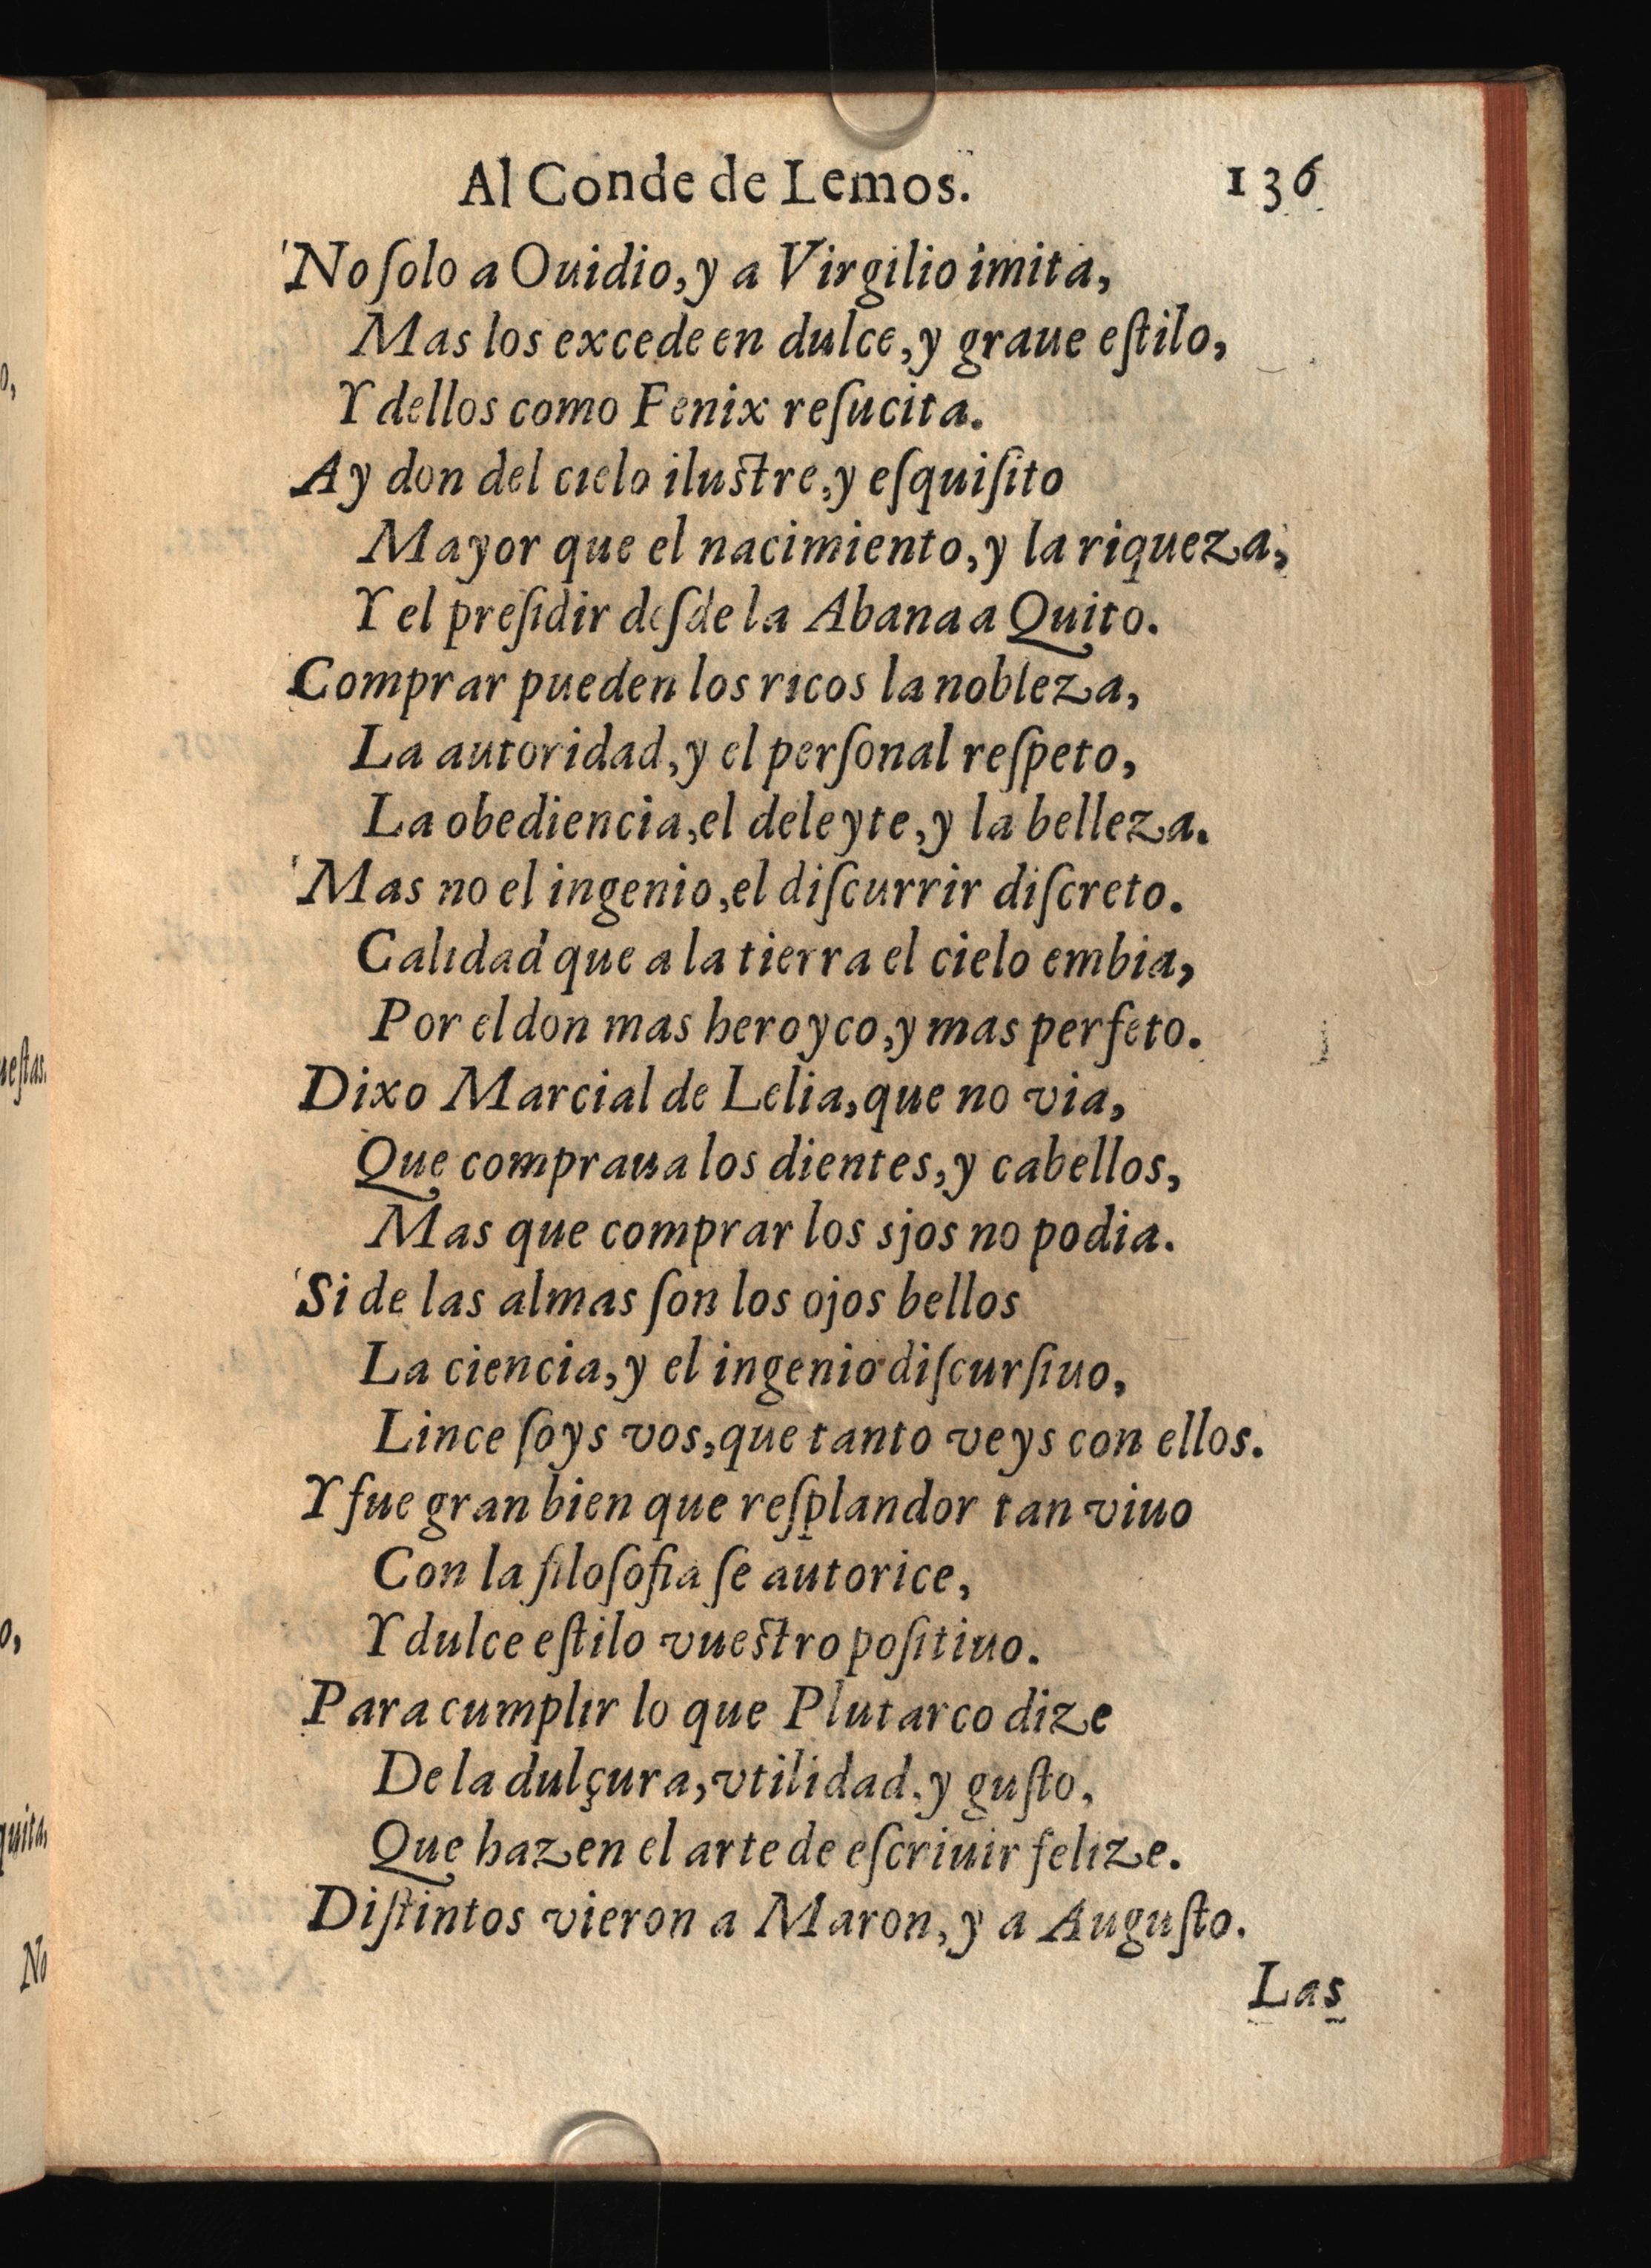 Al Conde de Lemos. 136
No ſolo a Ouidio, y a Virgilio imita,
Mas los excede en dulce, y graue eſtilo,
Y dellos como Fenix reſucita.
Ay don del cielo iluſtre, y eſquiſito
Mayor que el nacimiento, y la riqueza,
Y el preſidir deſde la Abana a Quito.
Comprar pueden los ricos la nobleza,
La autoridad, y el perſonal reſpeto,
La obediencia, el deleyte, y la belleza.
Mas no el ingenio, el diſcurrir diſcreto.
Calidad que a la tierra el cielo embia,
Por el don mas heroyco, y mas perfeto.
Dixo Marcial de Lelia, que no via,
Que compraua los dientes, y cabellos,
Mas que comprar los sjos no podia.
Si de las almas ſon los ojos bellos
La ciencia, y el ingenio diſcurſiuo,
Lince ſoys vos, que tanto veys con ellos.
Y fue gran bien que reſplandor tan viuo
Con la filoſofia ſe autorice,
Y dulce eſtilo vueſtro poſitiuo.
Para cumplir lo que Plutarco dize
De la dulçura, vtilidad, y guſto,
Que hazen el arte de eſcriuir felize.
Diſtintos vieron a Maron, y a Auguſto.
Las
o,
ueſtas.
o,
quita,
No